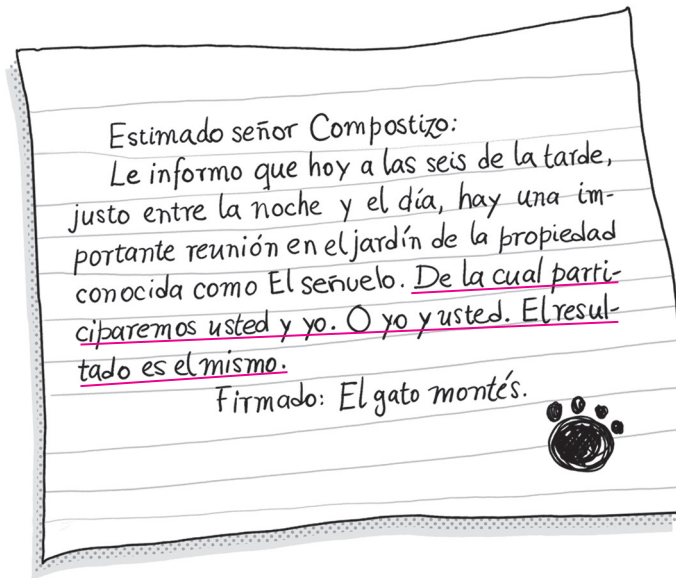 Estimado señor Compostizo:
Le informo que hoy a las seis de la tarde,
justo entre la noche y el día, hay una im-
portante reunión en el jardín de la propiedad
conocida como El señuelo. De la cual parti-
ciparemos usted y yo. O yo y usted. El resul-
tado es el mismo.
Firmado: El gato montés.